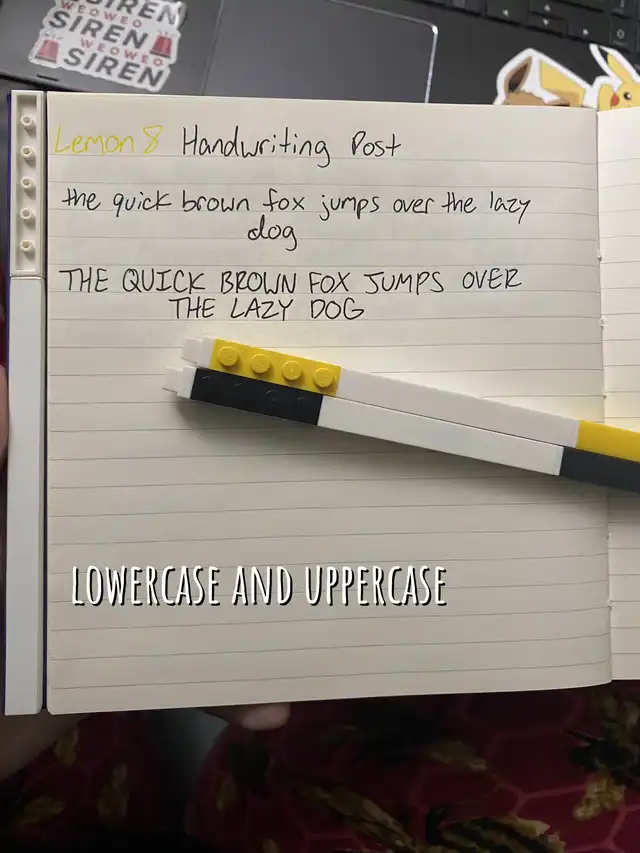 SIREN
WEOWEO
SIREN
WEOWEO
SIREN
Lemon 8 Handwriting Post
the quick brown fox jumps over the lazy
dog
THE QUICK BROWN FOX JUMPS OVER
THE LAZY DOG
LOWERCASE AND UPPERCASE